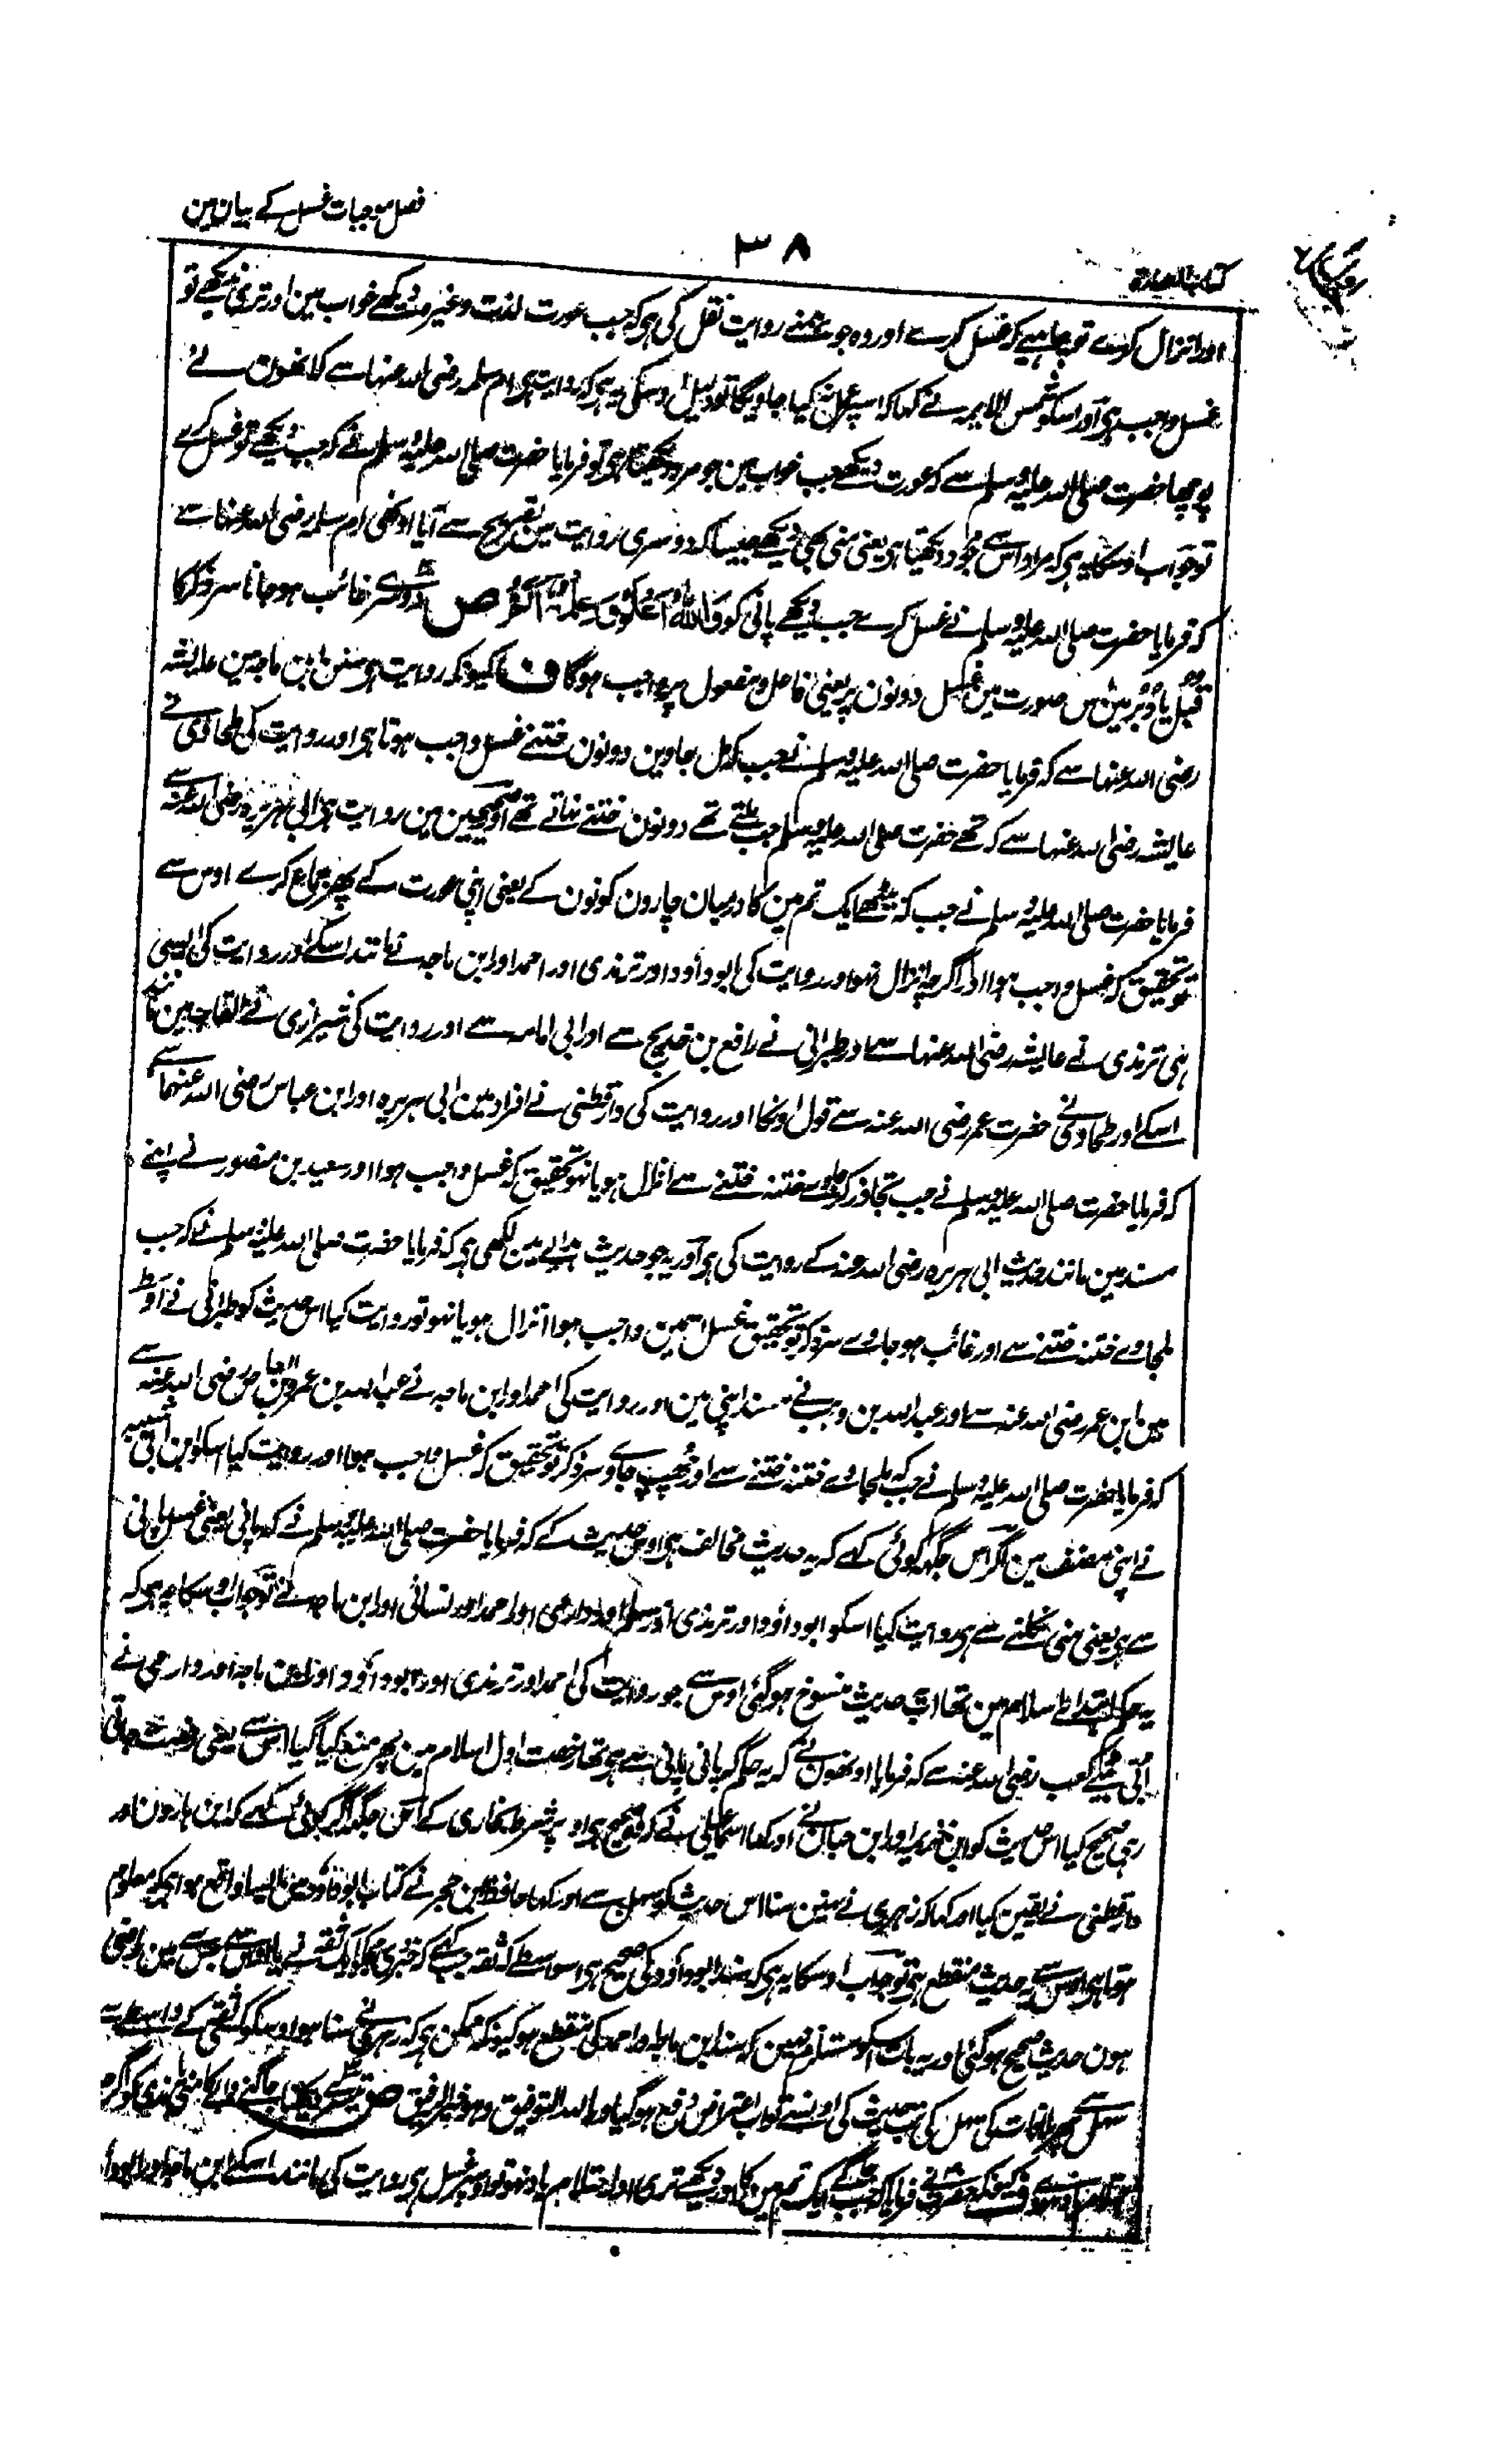 فصل موجبات غسل کے بیان مین
۳۸
کتاب الطہارۃ
اور انزال کرے تو چاہیے کہ غسل کرے اور وہ جو محمد نے روایت نقل کی ہی کہ جب عورت لذت وغیرہ دیکھے خواب مین اور تری نہ دیکھے تو
غسل واجب ہی اور اسکو شمس الایمہ نے کہا کہ اسپر عمل نہ کیا جاویگا تو دلیل اوسکی یہ ہی کہ روایت ہی ام سلمہ رضی اللہ عنہا سے کہ انھون نے
پوچھا حضرت صلی اللہ علیہ وسلم سے کہ عورت دیکھے جب خواب مین جو مرد دیکھتا ہی تو فرمایا حضرت صلی اللہ علیہ وسلم نے کہ جب دیکھے تو غسل کرے
تو جواب اوسکا یہ ہی کہ مراد اس سے جو مرد دیکھتا ہی یعنی منی بھی دیکھے جیسا کہ دوسری روایت مین تصریح سے آیا اونھی ام سلمہ رضی اللہ عنہا سے
کہ فرمایا حضرت صلی اللہ علیہ وسلم نے غسل کرے جب دیکھے پانی کو وَاللہُ اَعْلَمُ وَعِلْمُہٗ اَتَمُّ ص دوسرے غائب ہو جانا سر ذکر کا
قُبُل یا دُبُر مین اس صورت مین غسل دونون پر یعنی فاعل و مفعول پر واجب ہوگا ف کیونکہ روایت ہی سنن ابن ماجہ مین عایشہ
رضی اللہ عنہا سے کہ فرمایا حضرت صلی اللہ علیہ وسلم نے جب کہ مل جاوین دونون ختنے غسل واجب ہوتا ہی اور روایت کی طحاوی نے
عایشہ رضی اللہ عنہا سے کہ تھے حضرت صلی اللہ علیہ وسلم جب ملتے تھے دونون ختنے نہاتے تھے اور صحیحین مین روایت ہی ابی ہریرہ رضی اللہ عنہ سے
فرمایا حضرت صلی اللہ علیہ وسلم نے جب کہ بیٹھے ایک تم مین کا درمیان چارون کونون کے یعنی اپنی عورت کے پھر جماع کرے اوس سے
تو تحقیق کہ غسل واجب ہوا اگرچہ انزال نہو اور روایت کی ابو داؤد اور ترمذی اور احمد اور ابن ماجہ نے مانند اسکے اور روایت کی ایسی
ہی ترمذی نے عایشہ رضی اللہ عنہا سے اور طبرانی نے رافع بن خدیج سے اور ابی امامہ سے اور روایت کی شیرازی نے القاب مین مانند
اسکے اور طحاوی نے حضرت عمر رضی اللہ عنہ سے قول اونکا اور روایت کی دارقطنی نے افراد مین ابی ہریرہ اور ابن عباس رضی اللہ عنہما سے
کہ فرمایا حضرت صلی اللہ علیہ وسلم نے جب تجاوز کر جاوے ختنہ ختنے سے انزال ہو یا نہو تحقیق کہ غسل واجب ہوا اور سعید بن منصور نے اپنے
مسند مین مانند حدیث ابی ہریرہ رضی اللہ عنہ کے روایت کی ہی اور یہ جو حدیث ہدایے مین لکھی ہی کہ فرمایا حضرت صلی اللہ علیہ وسلم نے کہ جب
ملجاوے ختنہ ختنے سے اور غائب ہو جاوے سر ذکر تو تحقیق غسل اسمین واجب ہوا انزال ہو یا نہو تو روایت کیا اس حدیث کو طبرانی نے اوسط
مین ابن عمر رضی اللہ عنہ سے اور عبد اللہ بن وہب نے مسند اپنی مین اور روایت کی احمد اور ابن ماجہ نے عبد اللہ بن عمرو بن العاص رضی اللہ عنہ سے
کہ فرمایا حضرت صلی اللہ علیہ وسلم نے جب کہ ملجاوے ختنہ ختنے سے اور چھپ جاوے سر ذکر تو تحقیق کہ غسل واجب ہوا اور روایت کیا اسکو ابن ابی شیبہ
نے اپنی مصنف مین اگر اس جگہ کوئی کہے کہ یہ حدیث مخالف ہی اوس حدیث کے کہ فرمایا حضرت صلی اللہ علیہ وسلم نے کہ پانی یعنی غسل پانی
سے ہی یعنی منی نکلنے سے ہی روایت کیا اسکو ابو داؤد اور ترمذی اور مسلم اور دارمی اور احمد اور نسائی اور ابن ماجہ نے تو جواب اوسکا یہ ہی کہ
یہ حکم ابتداے اسلام مین تھا اب یہ حدیث منسوخ ہو گئی اوس سے جو روایت کی احمد اور ترمذی اور ابو داؤد اور ابن ماجہ اور دارمی نے
اُبَیّ بیٹے کعب رضی اللہ عنہ سے کہ فرمایا اونھون نے کہ یہ حکم کہ پانی پانی سے ہی تھا رخصت اول اسلام مین پھر منع کیا گیا اس سے یعنی رخصت جاتی
رہی صحیح کیا اس حدیث کو ابن خزیمہ اور ابن حبان نے اور کہا اسماعیلی نے کہ صحیح ہی اوپر شرط بخاری کے اس جگہ اگر کوئی کہے کہ ابن ہارون اور
دارقطنی نے یقین کیا اور کہا کہ زہری نے نہین سنا اس حدیث کو سہل سے اور کہا حافظ ابن حجر نے کتاب ابو داؤد مین ایسا واقع ہوا ہی کہ معلوم
ہوتا ہی اوس سے یہ حدیث منقطع ہی تو جواب اوسکا یہ ہی کہ سند ابو داؤد کی صحیح ہی اسواسطے کہ ثقہ جب کہے کہ خبر دی مجکو ایک ثقہ نے یا اوس نے جس سے مین راضی
ہون حدیث صحیح ہو گئی اور یہ بات اسکو مستلزم نہین کہ سند ابن ماجہ و احمد کی منقطع ہو کیونکہ ممکن ہی کہ زہری نے سنا ہو اوسکو ثقہ کے واسطے سے
سہل سے پھر ملاقات کی سہل کی تب حدیث کی اوسنے تو اب اعتراض رفع ہو گیا وباللہ التوفیق وہو خیر الرفیق ص تیسرے دیکھنا جاگنے والے کا منی یا مذی کو اگرچہ
احتلام یاد نہو ف کیونکہ حضرت نے فرمایا کہ جب جاگے ایک تم مین کا اور دیکھے تری اور احتلام یاد نہو تو اوسپر غسل ہی روایت کی مانند اسکے ابن ماجہ اور ابو داؤد